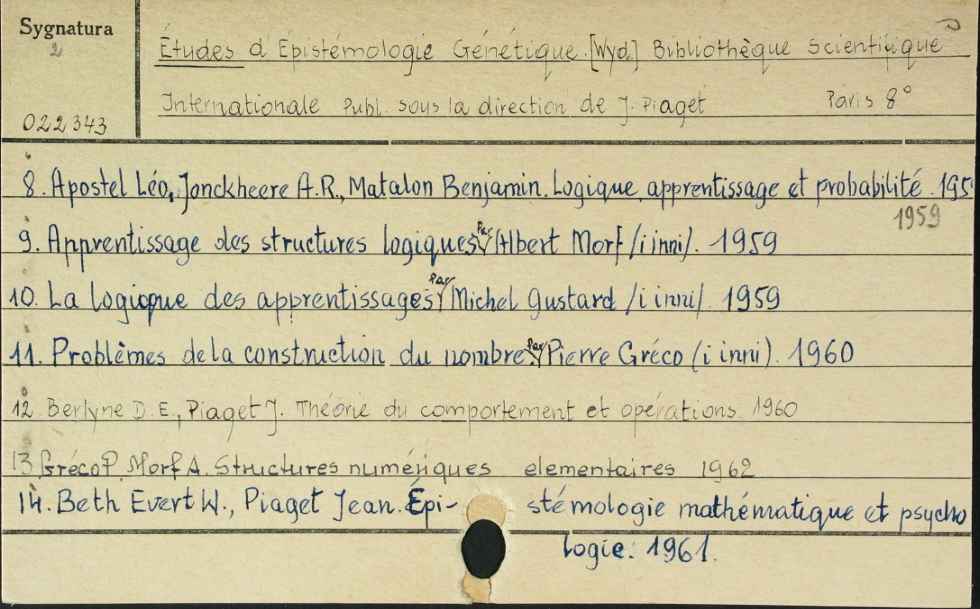 Sygnatura
2
Études d'Epistémologie Génétique. [Wyd.] Bibliothèque Scientifique
Internationale Publ. sous la direction de J. Piaget Paris 8°
022343
8. Apostel Léo, Jonckheere A.R., Matalon Benjamin. Logique, apprentissage et probabilité. 195
1959
9. Apprentissage des structures logiques Par Albert Morf /i inni/. 1959
10. La logicque des apprentissages Par Michel Gustard /i inni/. 1959
11. Problèmes de la construction du nombre. Par Pierre Gréco (i inni). 1960
12. Berlyne D. E., Piaget J. Théorie du comportement et opérations. 1960
13 Gréco P. Morf A. Structures numériques elementaires 1962
14. Beth Evert W., Piaget Jean. Épi- stémologie mathématique et psycho
logie. 1961.